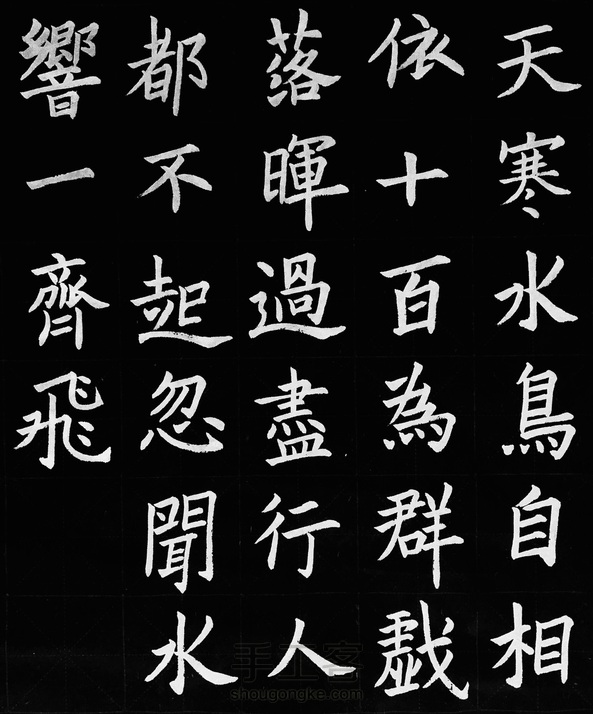 天寒水鳥自相
依十百為群戲
落暉過盡行人
都不起忽聞水
響一齊飛
手工客
shougongke.com